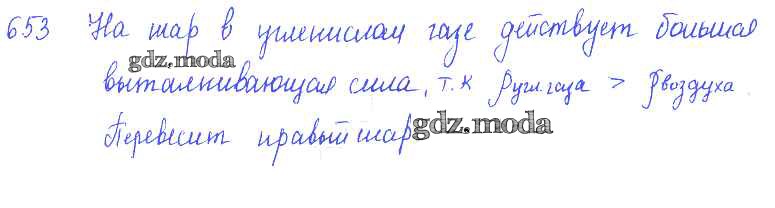 653 На шар в углекислом газе действует большая
gdz.moda
выталкивающая сила, т.к ρугл.газа > ρвоздуха.
Перевесит правый шар
gdz.moda